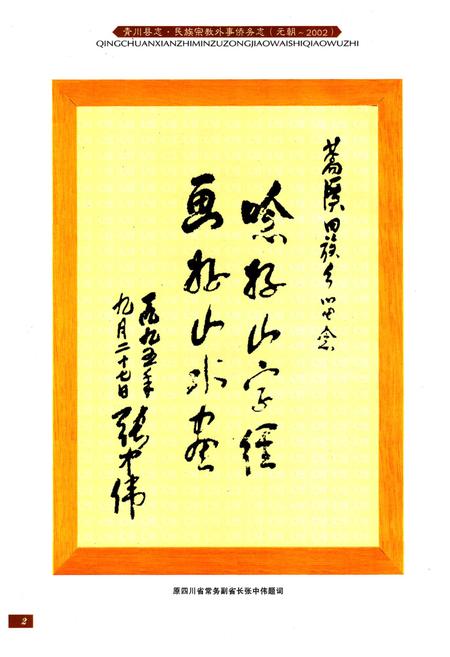 青川县志·民族宗教外事侨务志（元朝～2002）
QINGCHUANXIANZHIMINZUZONGJIAOWAISHIQIAOWUZHI
蒿溪回族乡留念
唸好山字經
画好山水畫
一九九五年
九月二十七日
张中伟
原四川省常务副省长张中伟题词
2